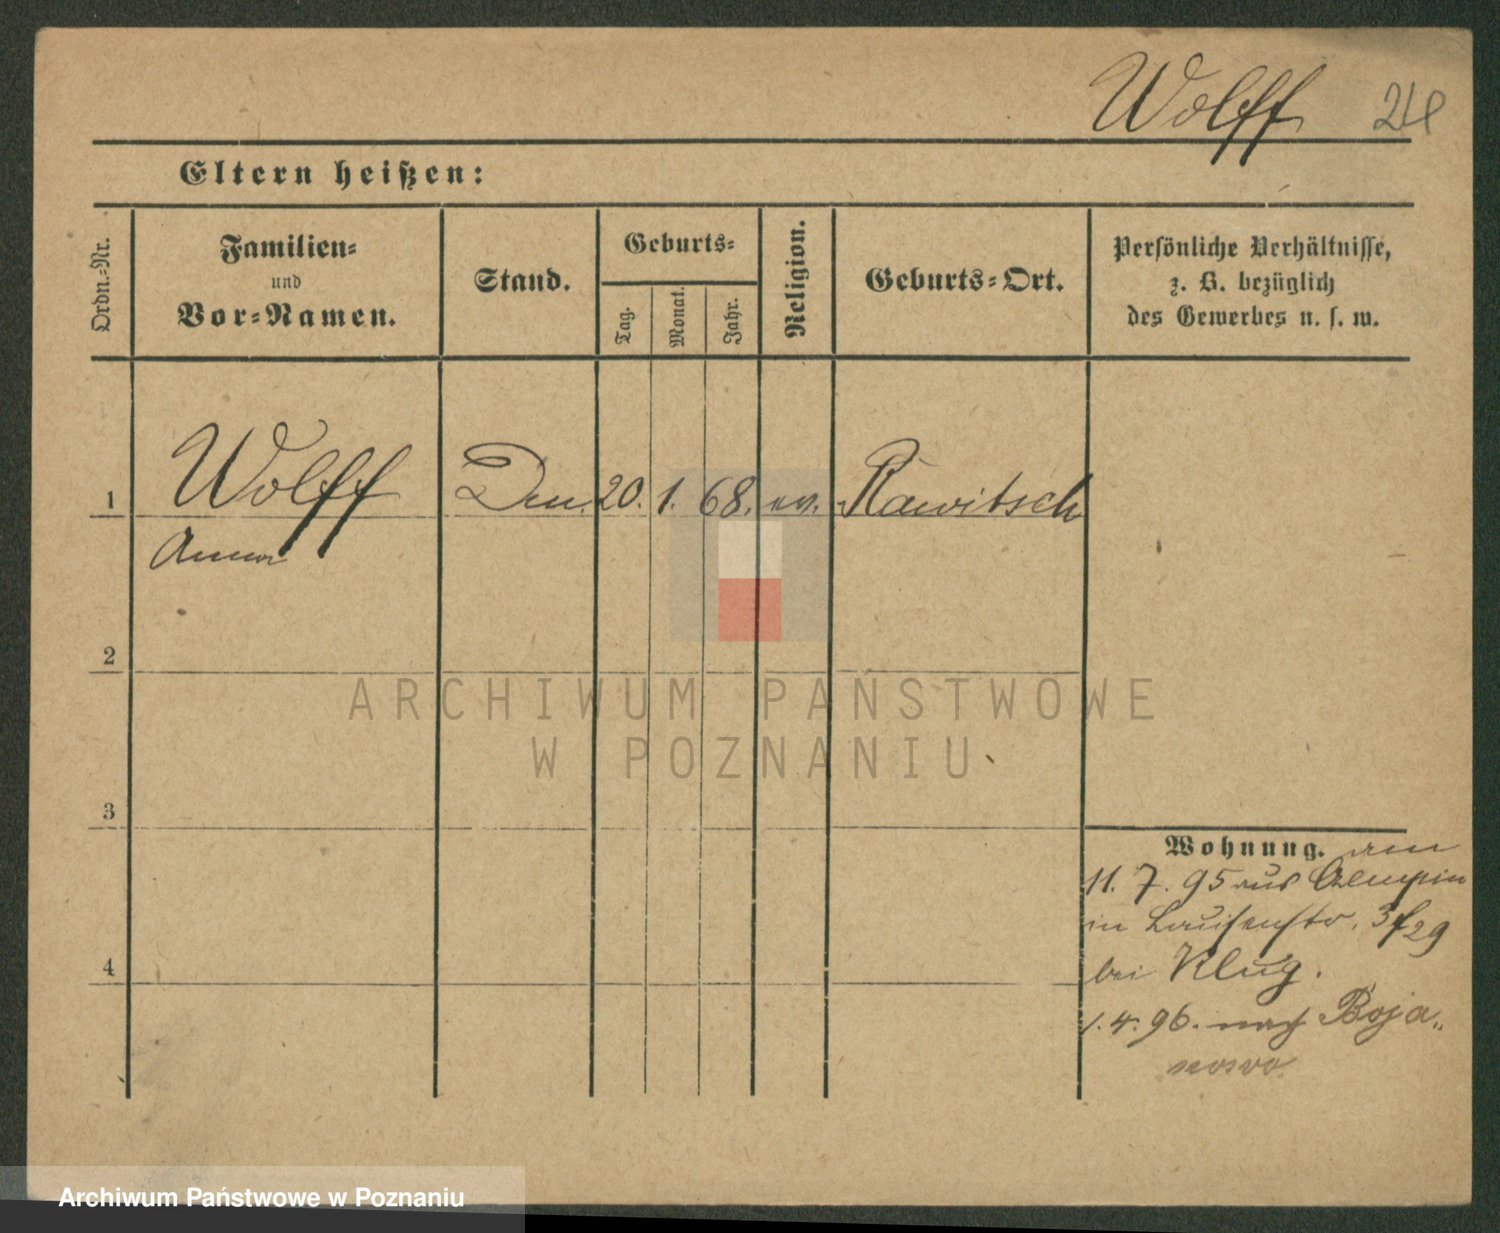 Wolff 24
Eltern heißen:
Ordn.-Nr.
Familien-
und
Vor-Namen.
Stand.
Geburts-
Tag.
Monat.
Jahr.
Religion.
Geburts-Ort.
Persönliche Verhältnisse,
z. B. bezüglich
des Gewerbes u. s. w.
1 Wolff 20. 1. 68. ev. Rawitsch
Anna
2
3
4
Wohnung. am
11. 7. 95 aus
in Louisenstr. 3
bei Klug.
1. 4. 96. nach Boja-
nowo
ARCHIWUM PAŃSTWOWE
W POZNANIU
Archiwum Państwowe w Poznaniu